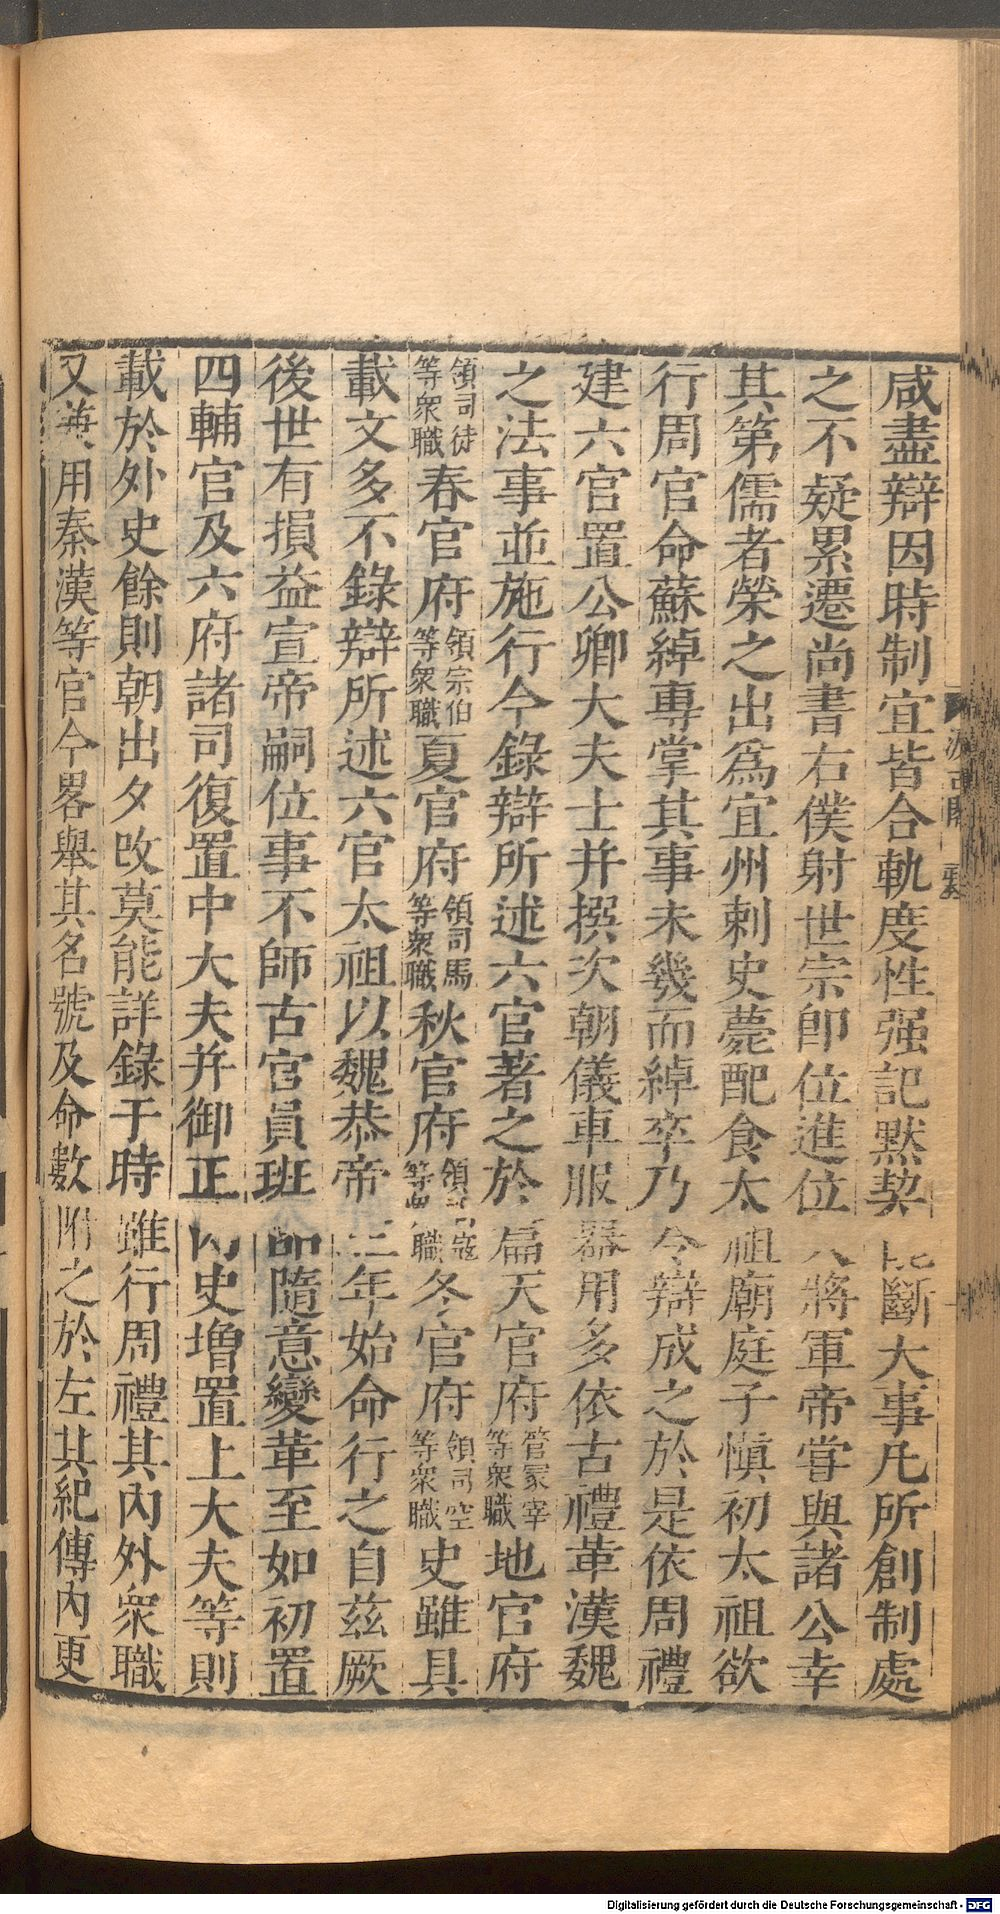 咸盡辯因時制宜皆合軌度性强記黙契能斷大事凡所創制處
之不疑累遷尚書右僕射世宗即位進位大將軍帝甞與諸公幸
其第儒者榮之出爲宜州刺史薨配食太祖廟庭子愼初太祖欲
行周官命蘇綽專掌其事未幾而綽卒乃令辯成之於是依周禮
建六官置公卿大夫士并撰次朝儀車服器用多依古禮革漢魏
之法事並施行今錄辯所述六官著之於篇天官府管冢宰等衆職地官府
領司徒等衆職春官府領宗伯等衆職夏官府領司馬等衆職秋官府領司寇等衆職冬官府領司空等衆職史雖具
載文多不錄辯所述六官太祖以魏恭帝三年始命行之自茲厥
後世有損益宣帝嗣位事不師古官員班品隨意變革至如初置
四輔官及六府諸司復置中大夫并御正內史增置上大夫等則
載於外史餘則朝出夕改莫能詳錄于時雖行周禮其內外衆職
又兼用秦漢等官今畧舉其名號及命數附之於左其紀傳內更
汲古閣
Digitalisierung gefördert durch die Deutsche Forschungsgemeinschaft - DFG